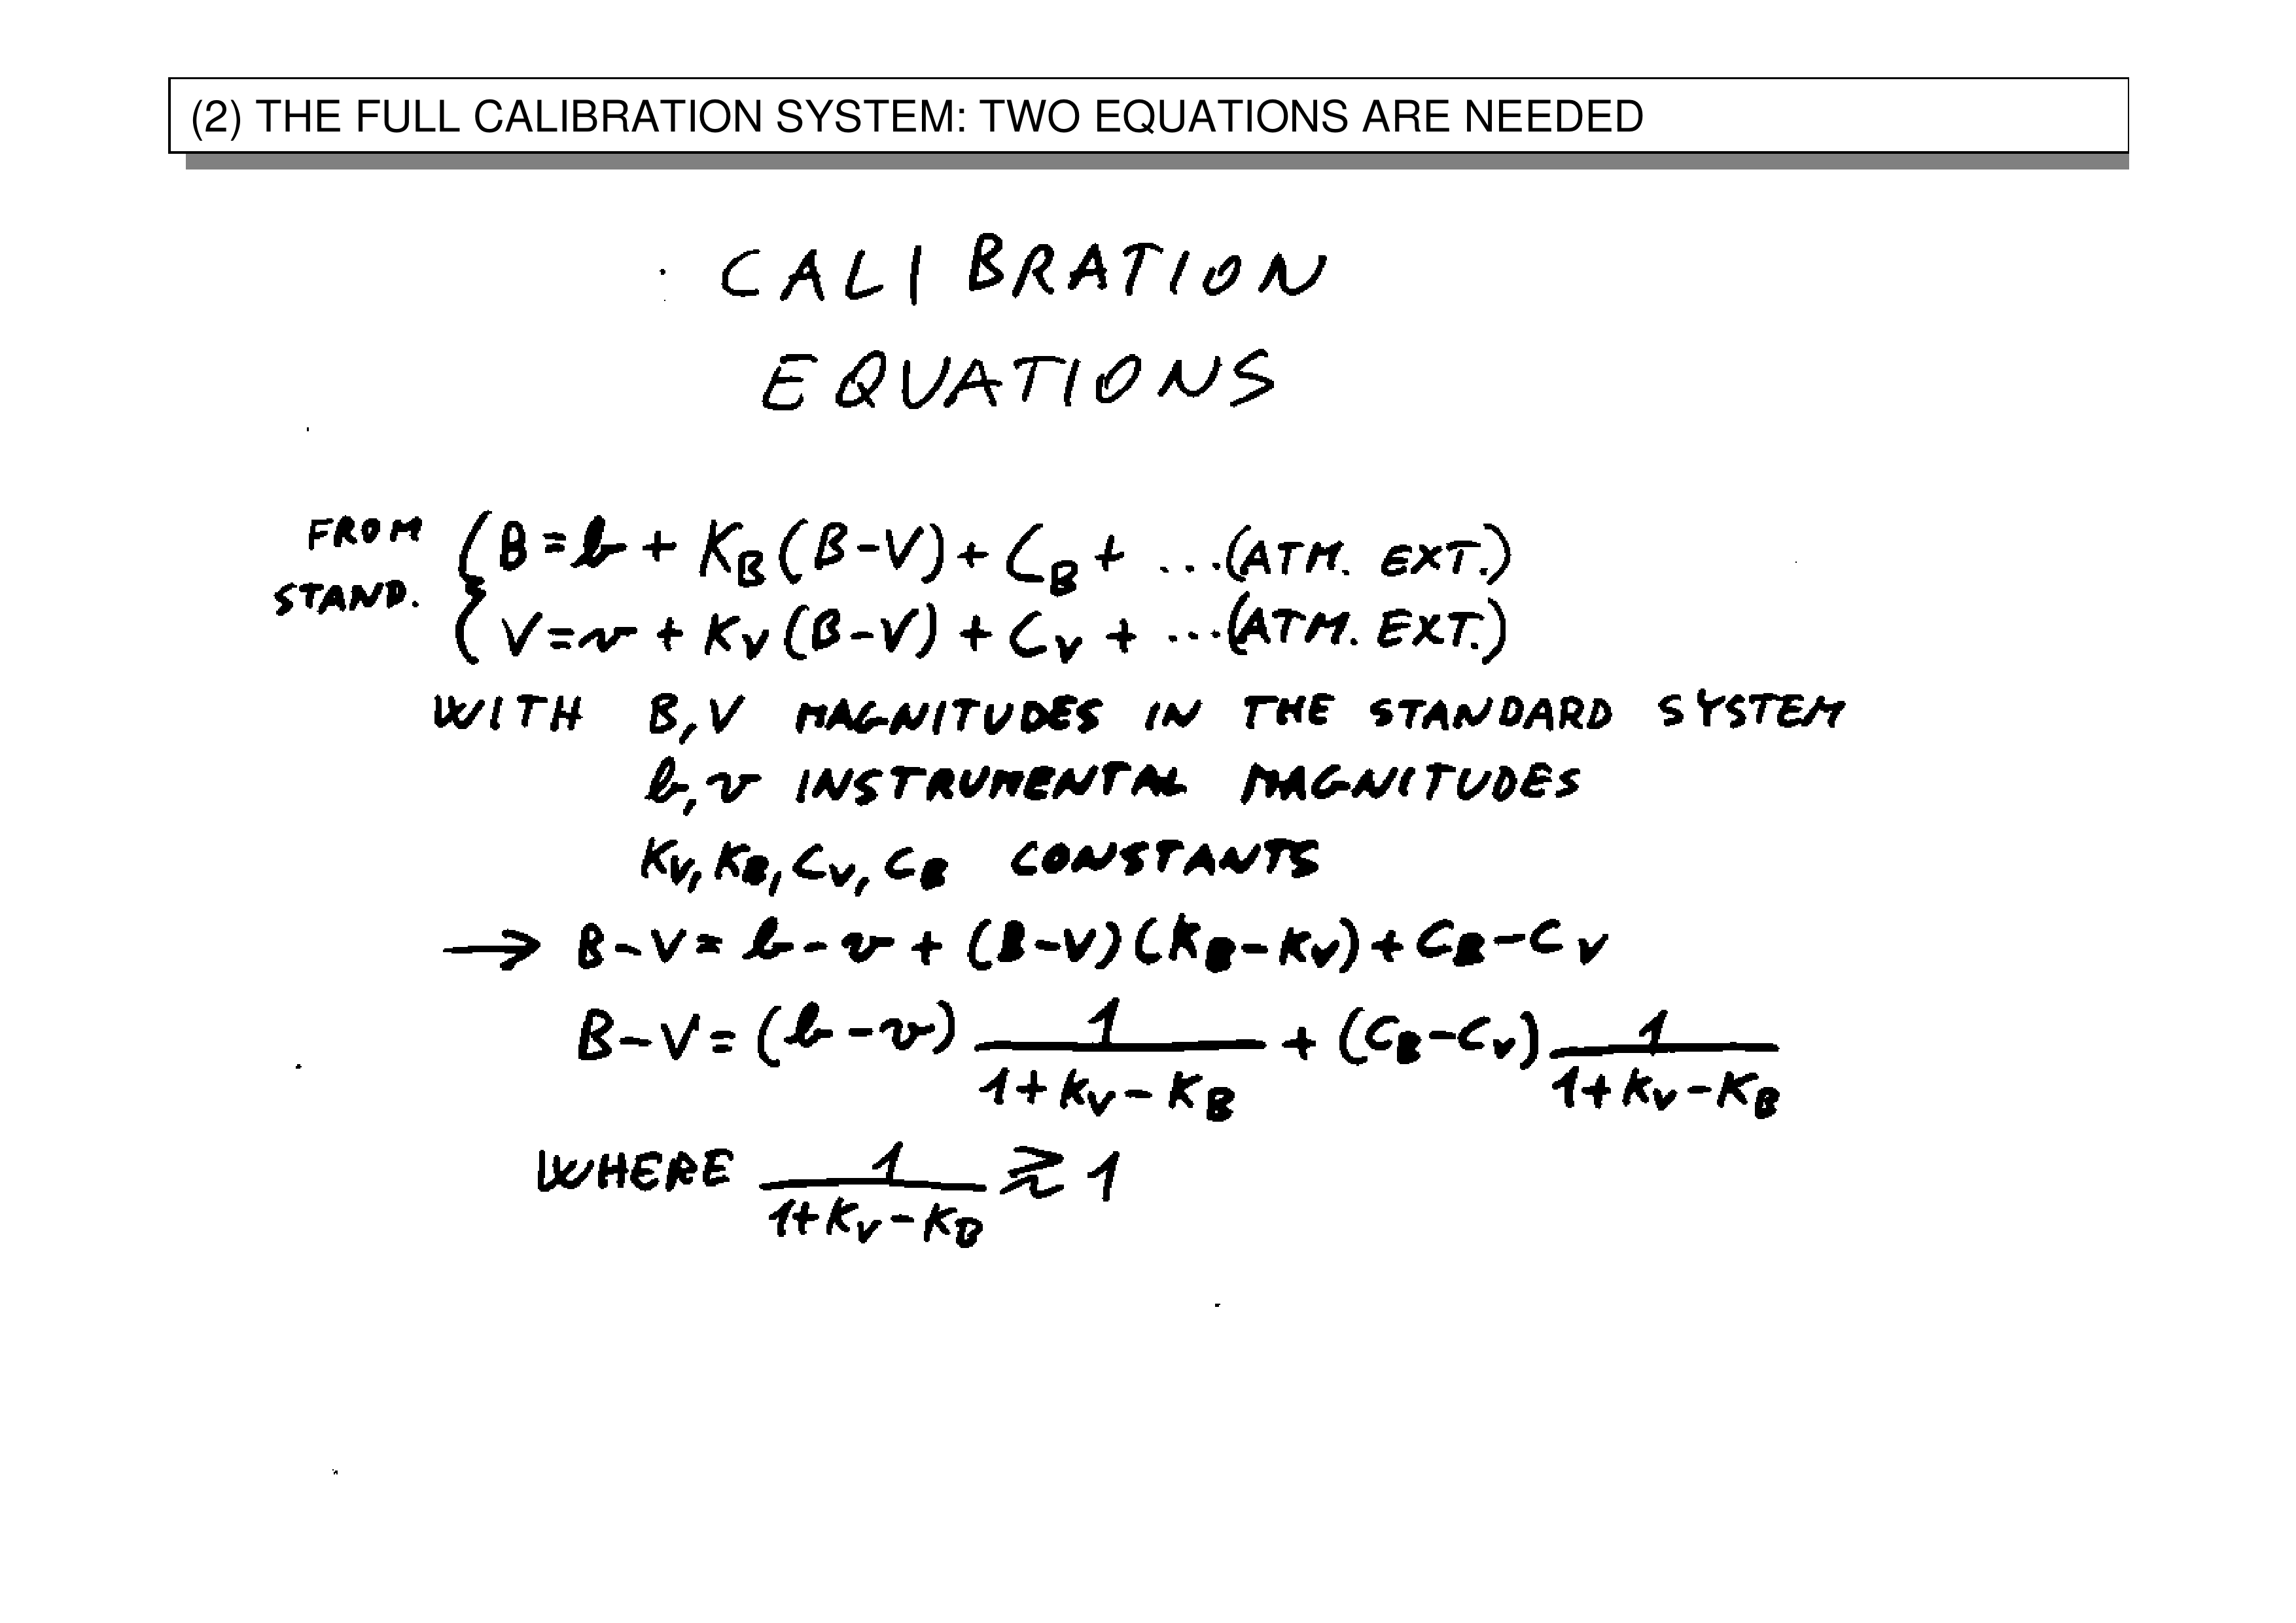 (2) THE FULL CALIBRATION SYSTEM: TWO EQUATIONS ARE NEEDED
CALIBRATION
EQUATIONS
FROM STAND. { B = b + K_B (B-V) + C_B + ... (ATM. EXT.)
V = v + K_V (B-V) + C_V + ... (ATM. EXT.)
WITH B, V MAGNITUDES IN THE STANDARD SYSTEM
b, v INSTRUMENTAL MAGNITUDES
K_V, K_B, C_V, C_B CONSTANTS
→ B-V = b-v + (B-V)(K_B-K_V) + C_B-C_V
B-V = (b-v) 1/(1+K_V-K_B) + (C_B-C_V) 1/(1+K_V-K_B)
WHERE 1/(1+K_V-K_B) ≷ 1